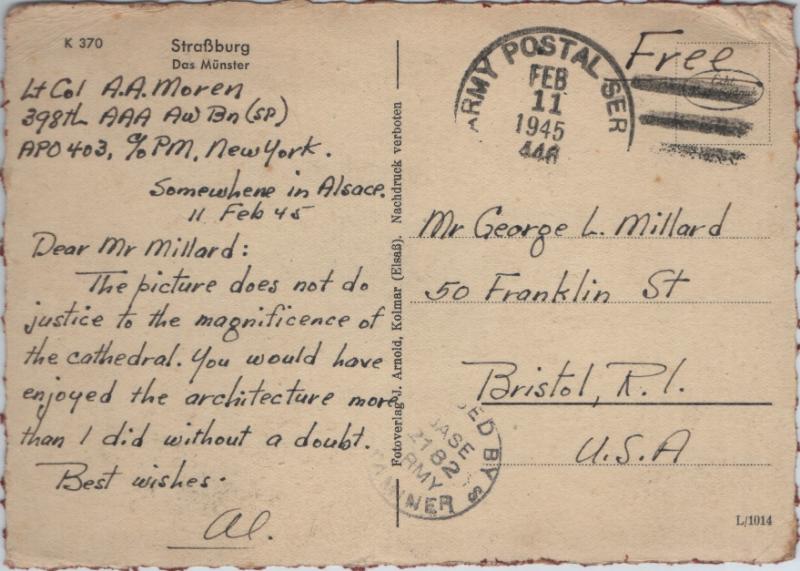 K 370
Straßburg
Das Münster
Lt Col A.A. Moren
398th AAA AW Bn (SP)
APO 403, c/o PM, New York.
Somewhere in Alsace.
11 Feb 45
Dear Mr Millard:
The picture does not do
justice to the magnificence of
the cathedral. You would have
enjoyed the architecture more
than I did without a doubt.
Best wishes.
Al.
Fotoverlag J. Arnold, Kolmar (Elsaß). Nachdruck verboten
ARMY POSTAL SER
FEB
11
1945
446
Free
Mr George L. Millard
50 Franklin St
Bristol, R.I.
U.S.A
SED BY
BASE
2182
ARMY
MINER
S
L/1014